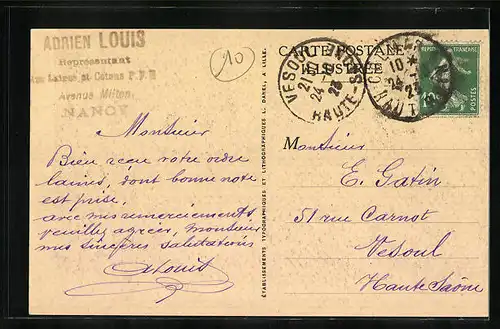 ADRIEN LOUIS
Représentant
Laines et Cotons P.F.R
Avenue Milton,
NANCY
10
Monsieur
Bien reçu votre ordre
laines, dont bonne note
est prise,
avec mes remerciements,
veuillez agréer, monsieur
mes sincères salutations
ALouis
ÉTABLISSEMENTS TYPOGRAPHIQUES ET LITHOGRAPHIQUES L. DANEL A LILLE.
CARTE POSTALE
ILLUSTRÉE
VESOUL
HAUTE-SAÔNE
RÉPUBLIQUE FRANÇAISE
POSTES
10
M
Monsieur
E. Gatin
51 rue Carnot
Vesoul
Haute Saône